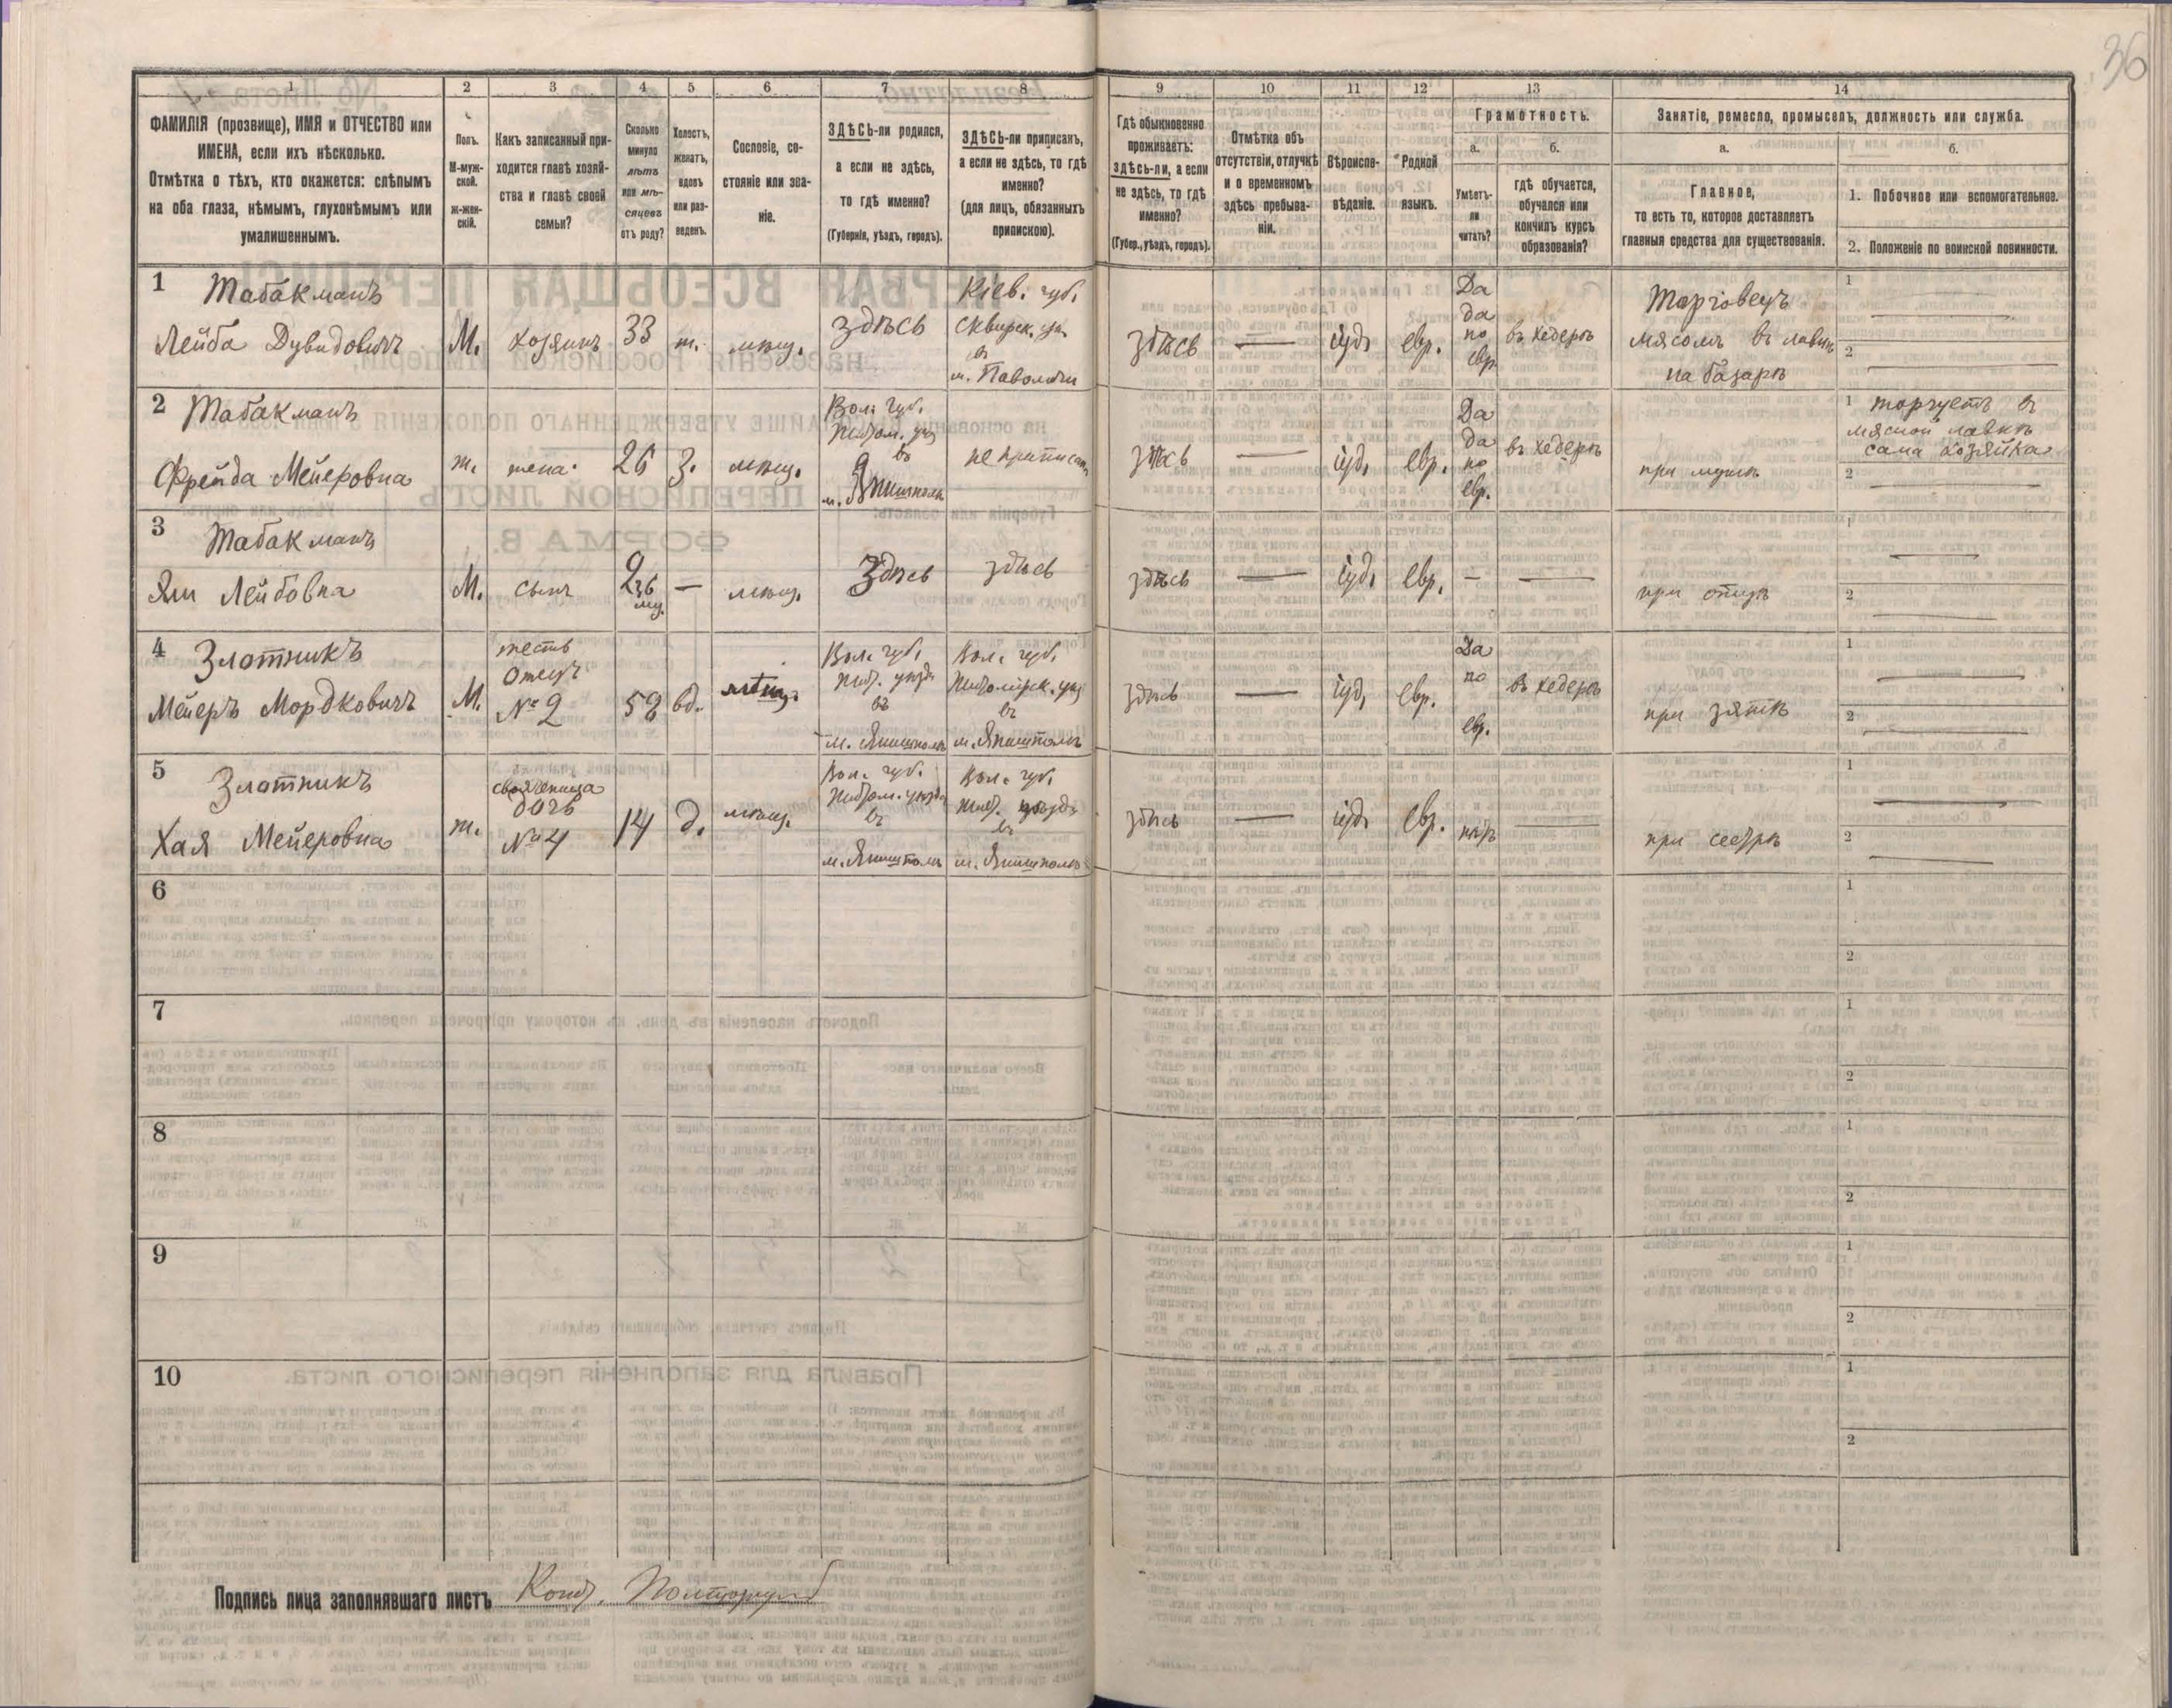 36
1
2
3
4
5
6
7
8
9
10
11
12
13
14
ФАМИЛІЯ (прозвище), ИМЯ и ОТЧЕСТВО или
ИМЕНА, если ихъ нѣсколько.
Отмѣтка о тѣхъ, кто окажется: слѣпымъ
на оба глаза, нѣмымъ, глухонѣмымъ или
умалишеннымъ.
Полъ.
М-муж-
ской.
ж-жен-
скій.
Какъ записанный при-
ходится главѣ хозяй-
ства и главѣ своей
семьи?
Сколько
минуло
лѣтъ
или мѣ-
сяцевъ
отъ роду?
Холостъ,
женатъ,
вдовъ
или раз-
веденъ.
Сословіе, со-
стояніе или зва-
ніе.
ЗДѢСЬ-ли родился,
а если не здѣсь,
то гдѣ именно?
(Губернія, уѣздъ, городъ).
ЗДѢСЬ-ли приписанъ,
а если не здѣсь, то гдѣ
именно?
(для лицъ, обязанныхъ
припискою).
Гдѣ обыкновенно
проживаетъ:
здѣсь-ли, а если
не здѣсь, то гдѣ
именно?
(Губер., уѣздъ, городъ).
Отмѣтка объ
отсутствіи, отлучкѣ
и о временномъ
здѣсь пребыва-
ніи.
Вѣроиспо-
вѣданіе.
Родной
языкъ.
Грамотность.
а.
Умѣетъ-
ли
читать?
б.
гдѣ обучается,
обучался или
кончилъ курсъ
образованія?
Занятіе, ремесло, промыселъ, должность или служба.
а.
Главное,
то есть то, которое доставляетъ
главныя средства для существованія.
б.
1. Побочное или вспомогательное.
2. Положеніе по воинской повинности.
1
Табакманъ
Лейба Дувидовичъ
М.
хозяинъ
33
ж.
мѣщ.
здѣсь
Кіев. губ.
Сквирск. уѣз.
въ
м. Паволочи
здѣсь
—
іуд.
евр.
Да
да
по
евр.
въ хедерѣ
Торговецъ
мясомъ въ лавкѣ
на базарѣ
1
2
2
Табакманъ
Фрейда Мейеровна
ж.
жена
26
З.
мѣщ.
Вол. губ.
Житом. уѣз.
въ
м. Янушполь
не приписана
здѣсь
—
іуд.
евр.
Да
да
по
евр.
въ хедерѣ
при мужѣ
1 торгуетъ въ
мясной лавкѣ
сама хозяйка
2
3
Табакманъ
Лейбовна
М.
сынъ
—
мѣщ.
Здѣсь
здѣсь
здѣсь
—
іуд.
евр.
—
—
при отцѣ
1
2
4
Злотникъ
Мейеръ Мордковичъ
М.
тесть
Отецъ
№ 2
58
вд.
мѣщ.
Вол. губ.
Жит. уѣзд.
въ
м. Янушполь
Вол. губ.
Житомірск. уѣз.
въ
м. Янушполь
здѣсь
—
іуд.
евр.
Да
по
евр.
въ хедерѣ
при зятѣ
1
2
5
Злотникъ
Хая Мейеровна
ж.
свояченица
дочь
№ 4
14
д.
мѣщ.
Вол. губ.
Житом. уѣзда
въ
м. Янушполь
Вол. губ.
Жит. уѣзда
въ
м. Янушполь
здѣсь
—
іуд.
евр.
нѣтъ
—
при сестрѣ
1
2
6
1
2
7
1
2
8
1
2
9
1
2
10
1
2
Подпись лица заполнявшаго листъ